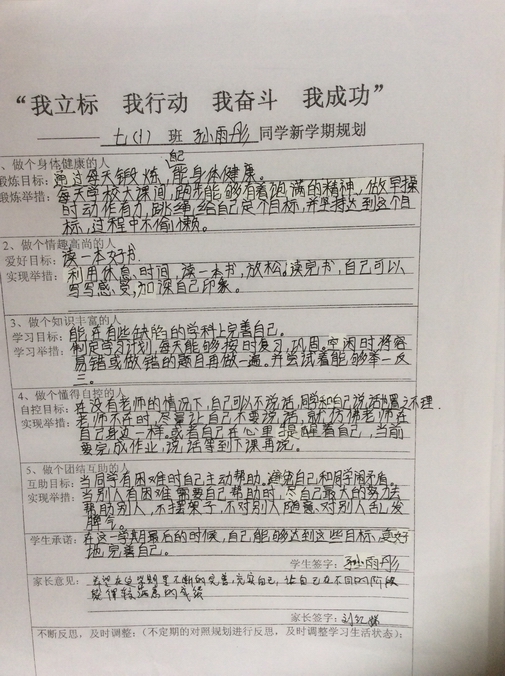 “我立标 我行动 我奋斗 我成功”
七(1) 班 孙雨彤 同学新学期规划
、做个身体健康的人
锻炼目标：通过每天锻炼，能身体健康。
锻炼举措：每天学校大课间，跑步能够有着饱满的精神，做早操
时动作有力，跳绳，给自己定个目标，并坚持达到这个目
标，过程中不偷懒。
2、做个情趣高尚的人
爱好目标：读一本好书.
实现举措：利用休息时间，读一本书，放松。读完书，自己可以
写写感受，加深自己印象。
3、做个知识丰富的人
学习目标：能在有些缺陷的学科上完善自己。
学习举措：制定学习计划，每天能够按时复习、巩固。空闲时将容
易错或做错的题目再做一遍。并尝试着能够举一反
三。
4、做个懂得自控的人
自控目标：在没有老师的情况下，自己可以不说话，同学和自己说话置之不理.
自控举措：老师不在时，尽量让自己不要说话，就仿佛老师在
自己身边一样，或者自己在心里提醒着自己，当前
要完成作业，说话等到下课再说。
5、做个团结互助的人
互助目标：当同学有困难时自己主动帮助。避免自己和同学闹矛盾。
实现举措：当别人有困难需要自己帮助时，尽自己最大的努力去
帮助别人，不摆架子，不对别人随意、对别人乱发
脾气。
学生承诺：在这一学期最后的时候，自己能够达到这些目标，更好
地完善自己。
学生签字：孙雨彤
家长意见：在新学期里不断的完善，充实自己，让自己在不同的阶段
家长签字：
不断反思，及时调整：(不定期的对照规划进行反思，及时调整学习生活状态)：